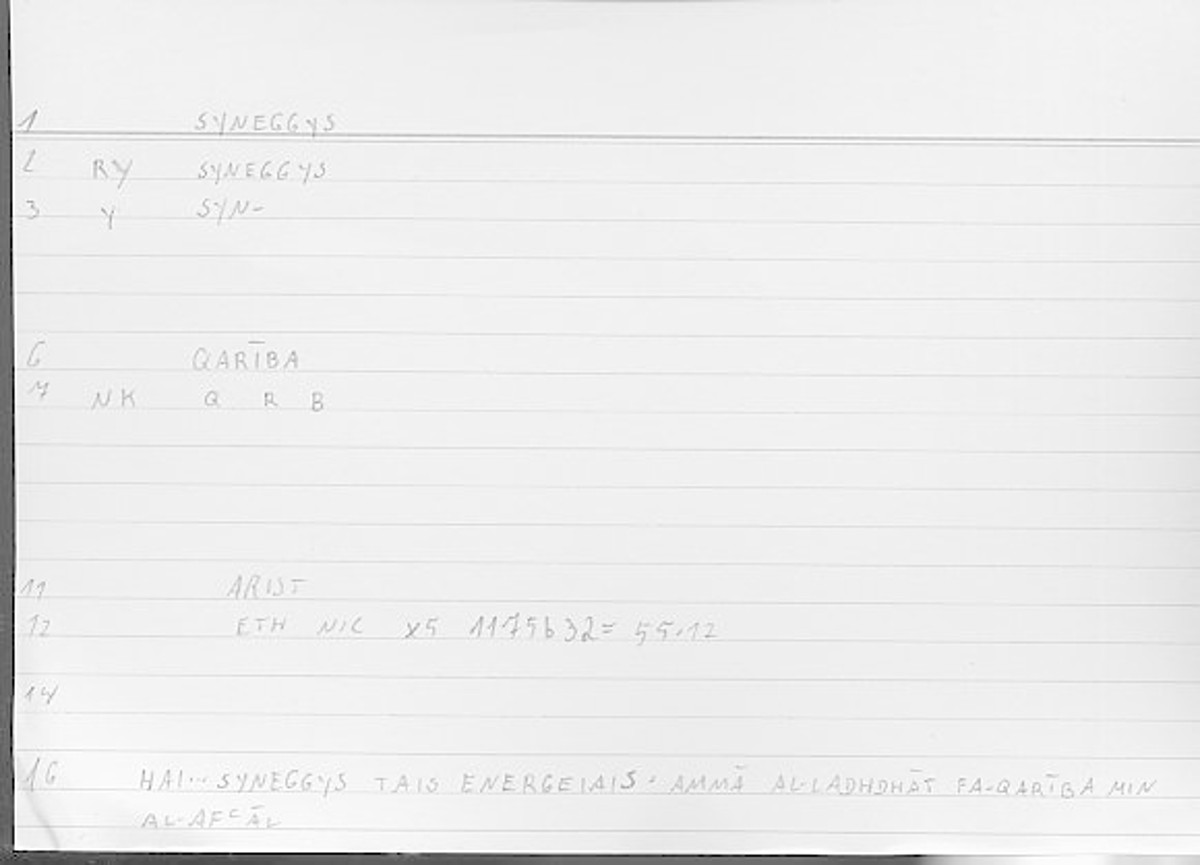 1 SYNEGGYS
2 RY SYNEGGYS
3 Y SYN-
6 QARĪBA
7 NK Q R B
11 ARIST
12 ETH NIC X5 1175b32= 55.12
14
16 HAI... SYNEGGYS TAIS ENERGEIAIS · AMMĀ AL-LADHDHĀT FA-QARĪBA MIN
AL-AFʿĀL